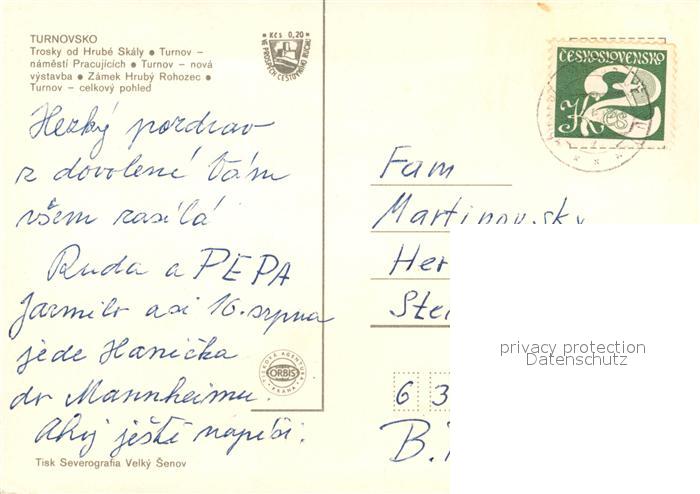 TURNOVSKO
Trosky od Hrubé Skály ● Turnov –
náměstí Pracujících ● Turnov – nová
výstavba ● Zámek Hrubý Rohozec ●
Turnov – celkový pohled
Kčs 0,20
VE PROSPĚCH CESTOVNÍHO RUCHU
ČESKOSLOVENSKO
2 Kčs
Hezký pozdrav
z dovolené Vám
všem zasílá
Ruda a PEPA
Jarmilo asi 16. srpna
jede Hanička
do Mannheimu.
Ahoj ještě napíši.
Fam
Martinovsky
Her
Ste
63
B.
TISKOVÁ AGENTURA
ORBIS
PRAHA
Tisk Severografia Velký Šenov
privacy protection
Datenschutz